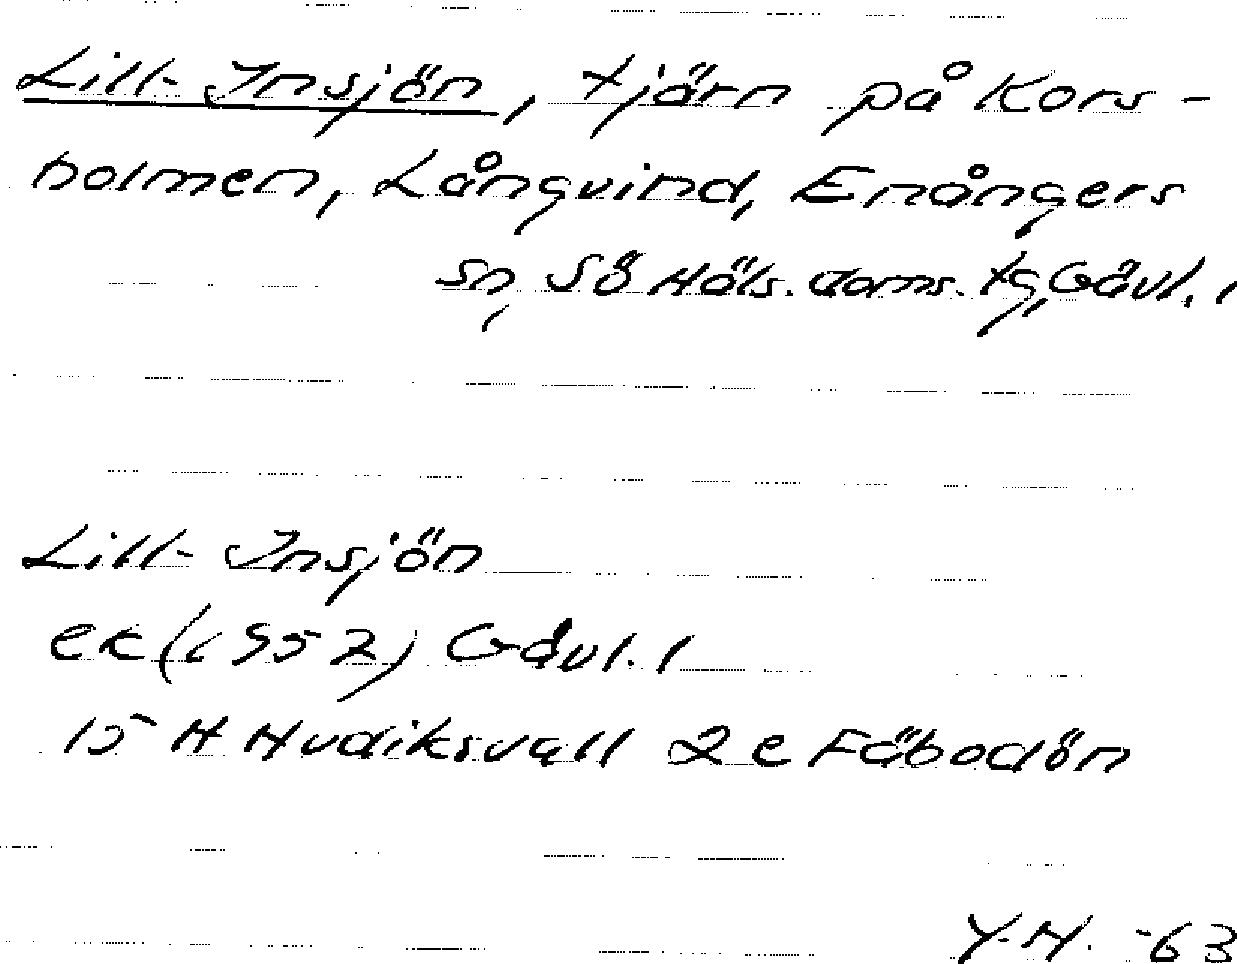 Lill-Insjön, tjärn på Kors-
holmen, Långvind, Enångers
sn, Sö Häls. doms. tg, Gävl. l
Lill-Insjön
ek (1952) Gävl. l
15 H Hudiksvall 2 e Fäbodön
Y.H. -63